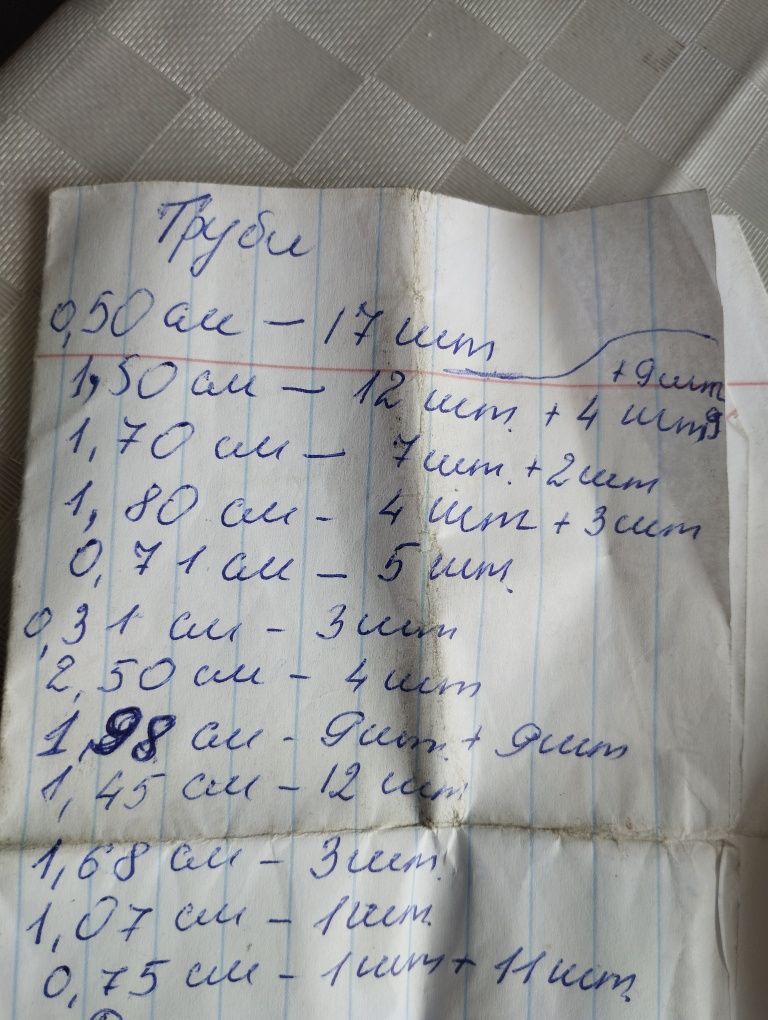 Труби
0,50 см - 17 шт
+9шт
1,50 см - 12 шт. + 4 шт
1,70 см - 7шт. +2шт
1,80 см - 4 шт + 3шт
0,71 см - 5 шт.
0,31 см - 3шт
2,50 см - 4шт
1,98 см - 9шт. + 9шт
1,45 см - 12 шт.
1,68 см - 3шт.
1,07 см - 1шт.
0,75 см - 1шт+ 11шт.